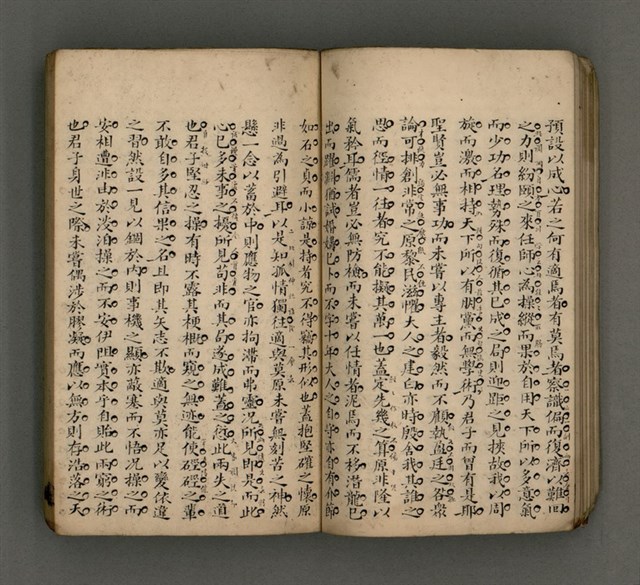 預設以成心若之何有適焉者有莫焉者察識偏而復濟以難回
之力則紛賾之來任師心為操縱而果於自困天下所以多意氣
而少功名理勢殊而復循其已成之局則迎距之見挾故我以周
旋而濃而相持天下所以有朋黨而無學術乃君子而智有是耶
聖賢豈必無事功而未嘗以專主者毅然而不顧執盈廷之咎眾
論可排創非常之原黎民滋懼大人之建白亦時殷舍我其誰之
思而徑情一往者究不能擬其萬一也蓋定先幾之算原非隆以
氣矜耳儒者豈必無防檢而未嘗以任情者泥焉而不移潛龍已
出而躍猶誠婚媾已卜而不字十年大人之自守亦自有介節
如石之貞而小諒是持者究不得竊其形似也蓋抱堅確之懷原
非過為引避耳以是知孤情獨往適與莫原未嘗無刻苦之神然
懸一念以蓄於中則應物之官亦拘滯而弗靈況所見即是而此
心已多未事之擾所見苟非而其局遂成難蓋之愆此兩失之道
也君子堅忍之操有時不露其梗概而窺之無迹能使硜硜之輩
不敢自多其信果之名且即其矢志不欺適與莫亦足以變依違
之習然設一見以錮於內則事機之顯亦蔽塞而不悟況操之而
安相遭非由於淡泊操之而不安伊阻實承乎自貽此兩窮之術
也君子身世之際未嘗偶涉於膠凝而應以無方則存浩落之天